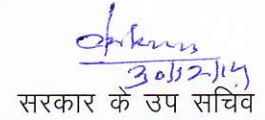 30/12/14
सरकार के उप सचिव